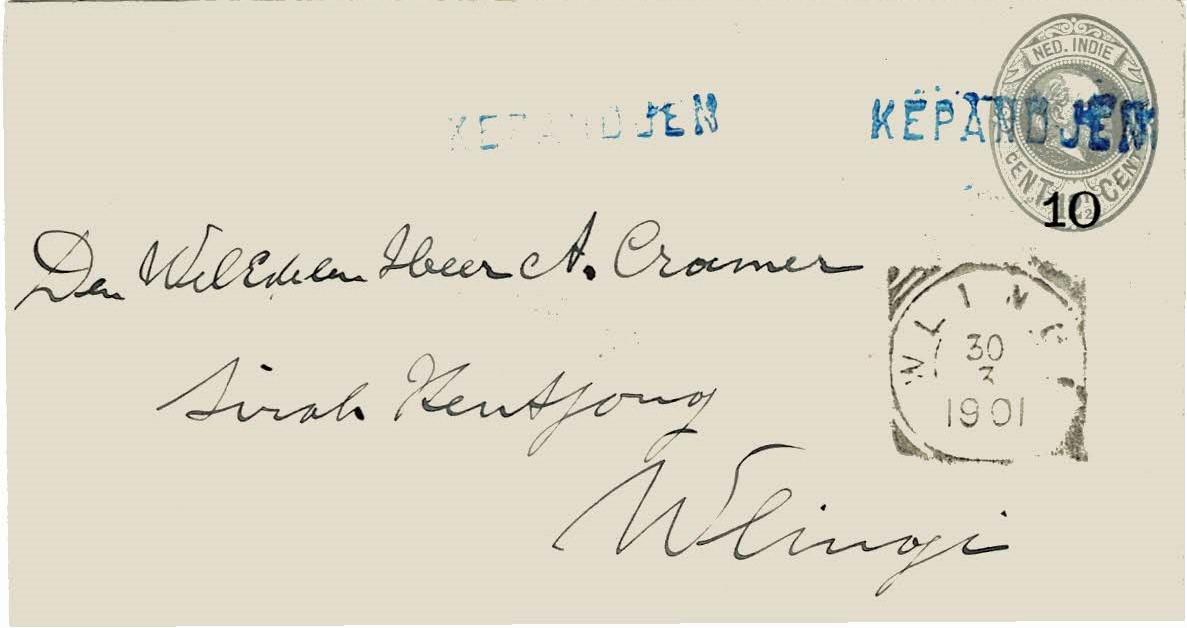 NED. INDIE
KEPANDJEN KEPANDJEN
CENT 12½ CENT
10
Den WelEdelen Heer A. Cramer
Sirah Kentjong
Wlingi
WLINGI
30
3
1901